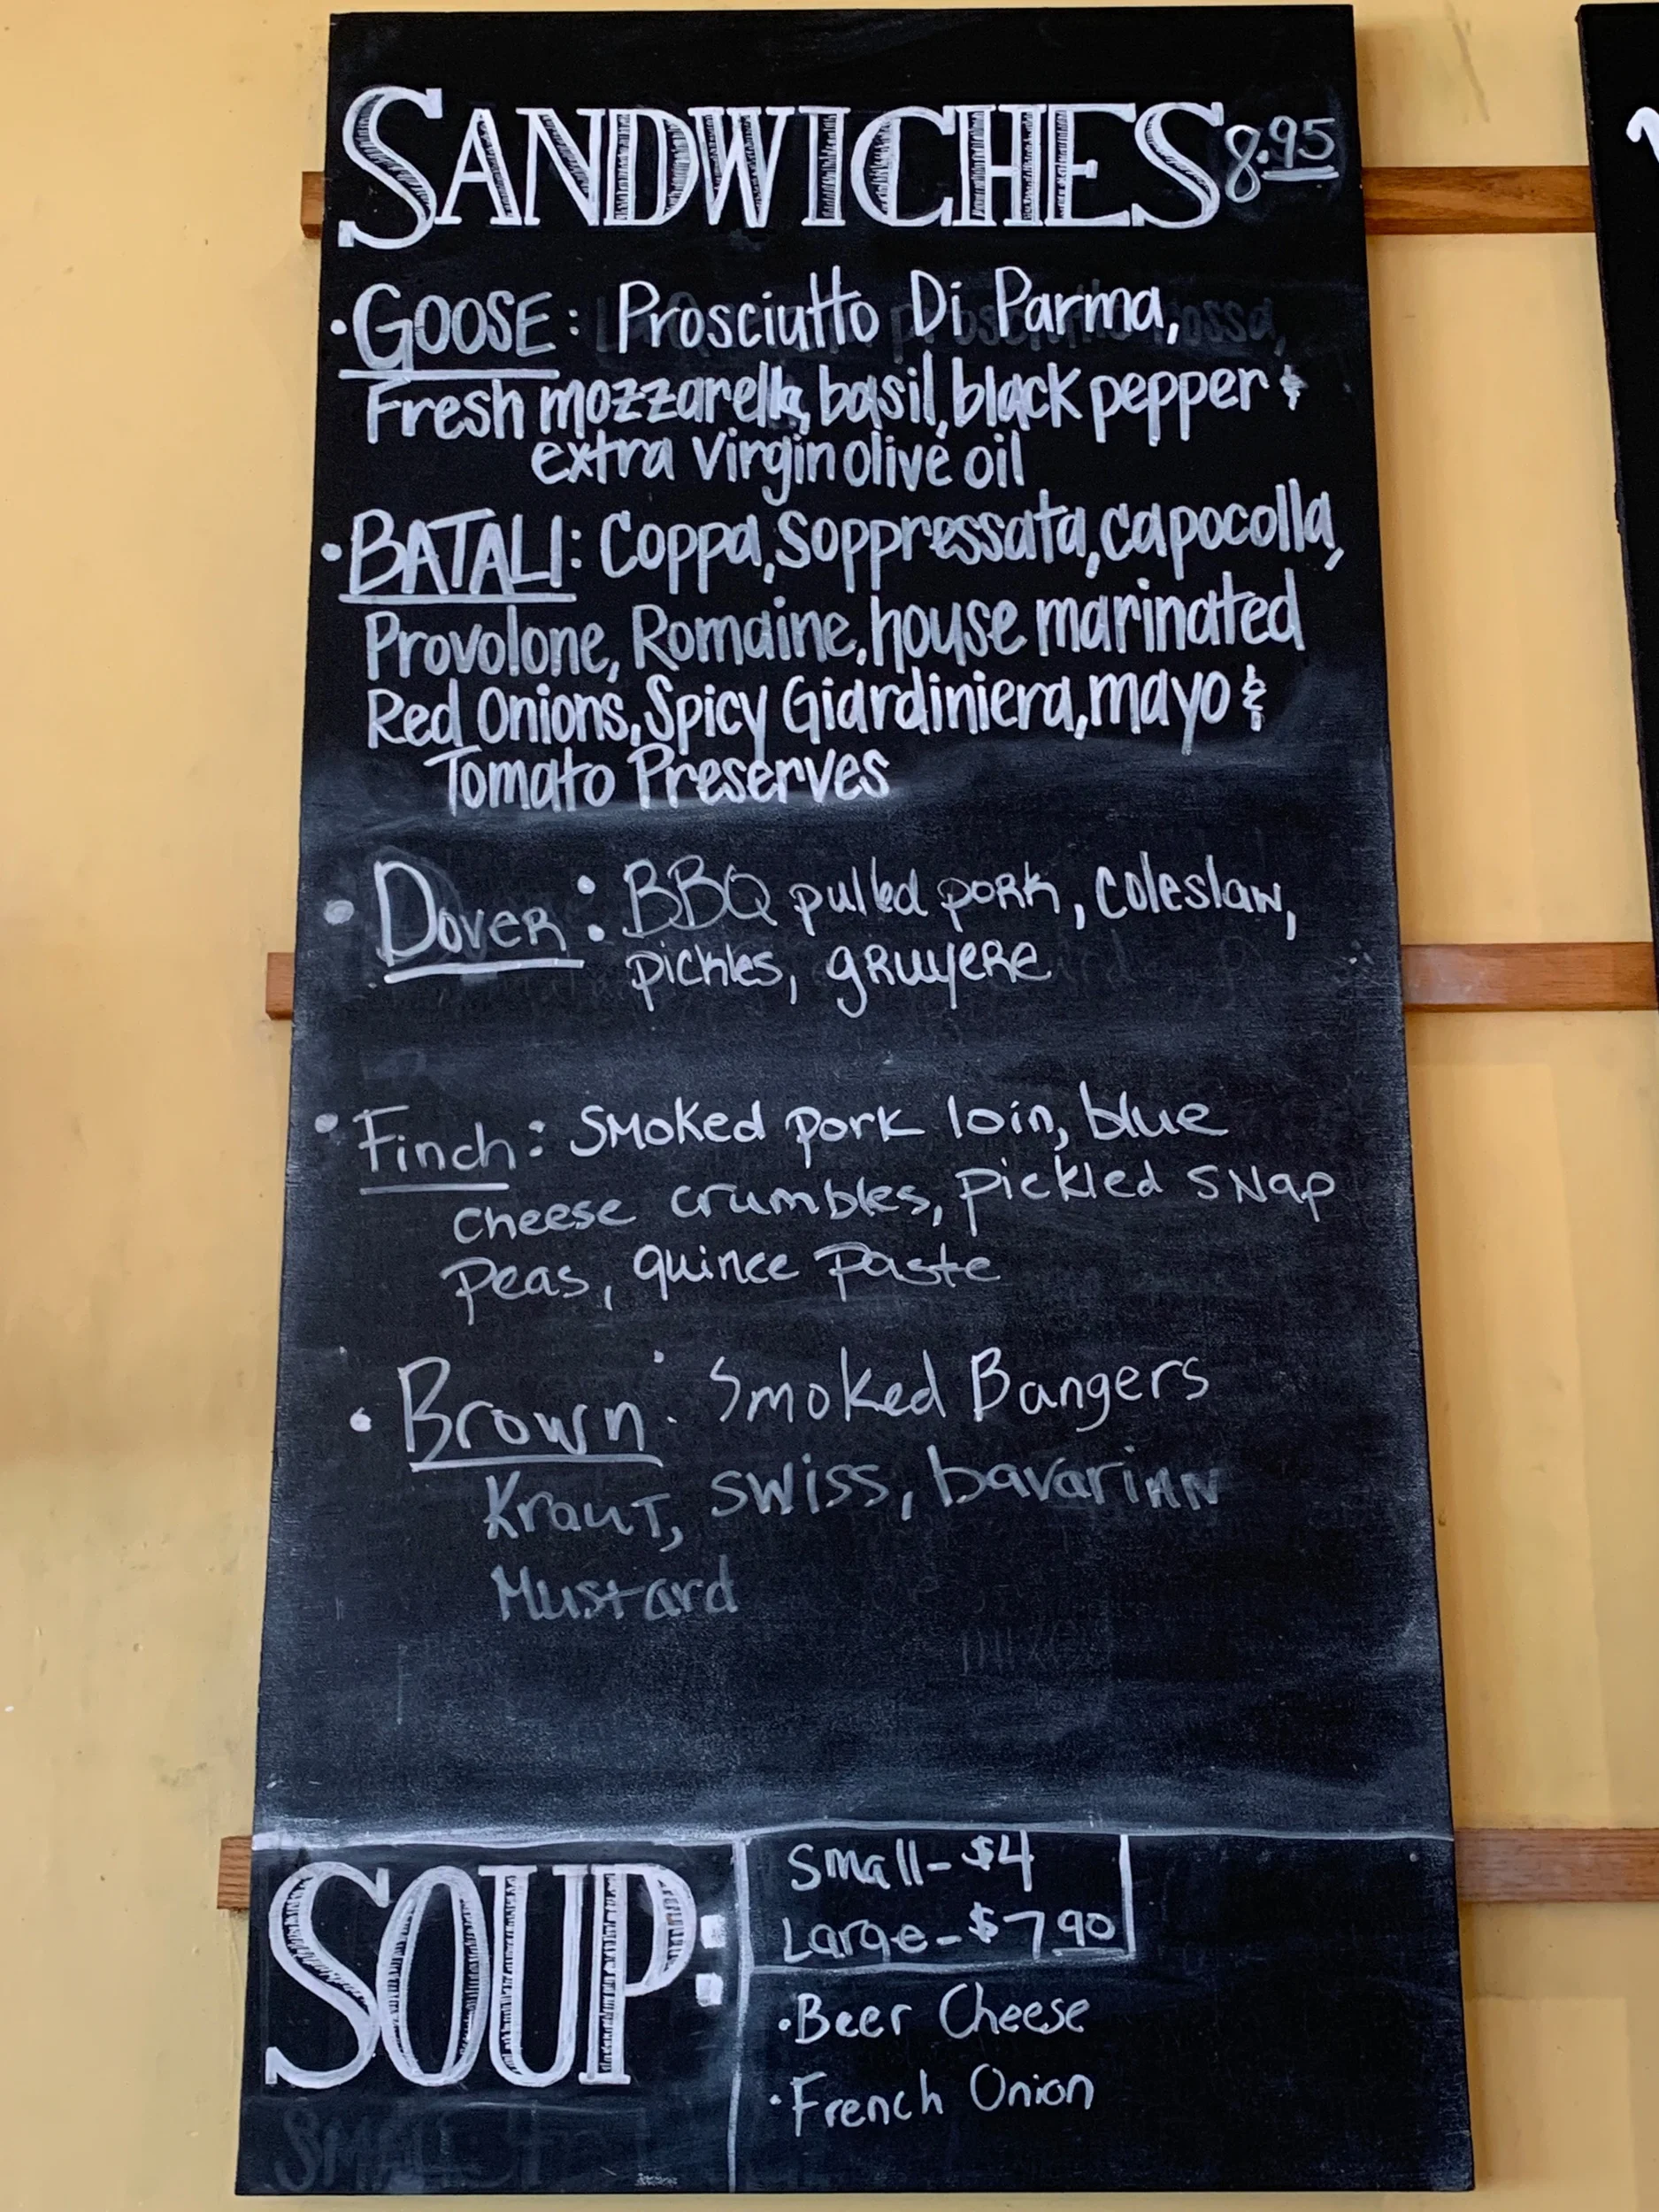 SANDWICHES 8.95
• GOOSE: Prosciutto Di Parma,
Fresh mozzarella, basil, black pepper &
extra virgin olive oil
• BATALI: Coppa, Soppressata, capocolla,
Provolone, Romaine, house marinated
Red Onions, Spicy Giardiniera, mayo &
Tomato Preserves
• Dover: BBQ pulled pork, coleslaw,
pickles, gruyere
• Finch: Smoked pork loin, blue
cheese crumbles, pickled snap
peas, quince paste
• Brown: Smoked Bangers
Kraut, swiss, bavarian
Mustard
SOUP:
Small - $4
Large - $7.90
• Beer Cheese
• French Onion